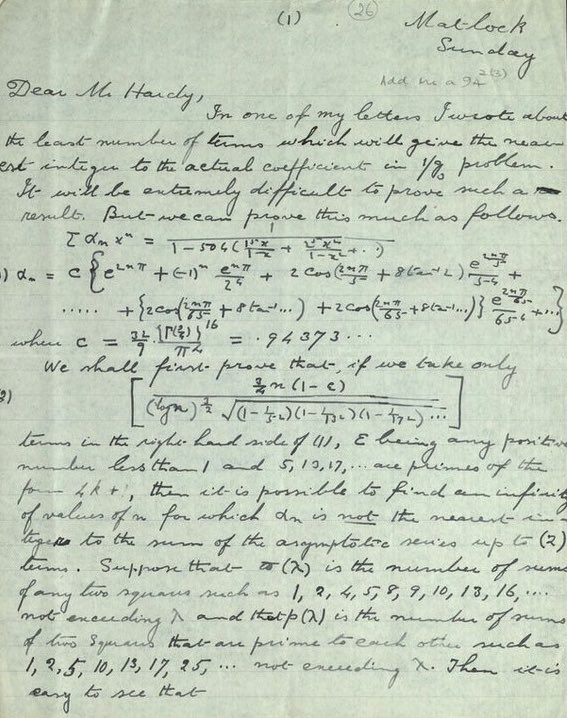 (1) 26
Matlock
Sunday
Add Ms a 94
Dear Mr Hardy,
In one of my letters I wrote about
the least number of terms which will give the near-
est integer to the actual coefficient in 1/g₃ problem.
It will be extremely difficult to prove such a
result. But we can prove this much as follows.
Σ αₙ xⁿ = 1 / (1 − 504 (1⁵x/(1−x) + 2⁵x²/(1−x²) + ...))
1) αₙ = C { e^{2nπ} + (−1)ⁿ e^{nπ}/2⁴ + 2 cos(2nπ/5 + 8 tan⁻¹2) e^{2nπ/5}/5⁴ +
..... + {2 cos(2nπ/65 + 8 tan⁻¹...) + 2 cos(2nπ/65 + 8 tan⁻¹...)} e^{2nπ/65}/65⁴ + ...}
where C =
= .94373...
We shall first prove that, if we take only
2) [ ¾ n (1 − ε) / ((log n)^{3/2} √((1 − 1/5²)(1 − 1/13²)(1 − 1/17²) ...)) ]
terms in the right hand side of (1), ε being any positive
number less than 1 and 5, 13, 17, ... are primes of the
form 4k + 1, then it is possible to find an infinity
of values of n for which αₙ is not the nearest in-
teger to the sum of the asymptotic series up to (2)
terms. Suppose that ϖ(λ) is the number of sums
of any two squares such as 1, 2, 4, 5, 8, 9, 10, 13, 16, ....
not exceeding λ and that ρ(λ) is the number of sums
of two squares that are prime to each other such as
1, 2, 5, 10, 13, 17, 25, ... not exceeding λ. Then it is
easy to see that